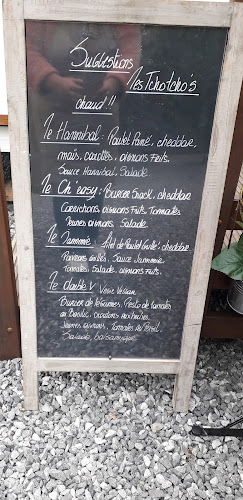 Suggestions
Les Tchotcho's
chaud !!
Le Hannibal : Poulet Pané, cheddar,
maïs, carottes, oignons frits.
Sauce Hannibal. Salade
Le Oh easy : Burger Snack, cheddar
Cornichons oignons frits Tomates
Jeunes oignons. Salade.
Le Jammie : Filet de Poulet Grillé : cheddar
Poivrons Grillés. Sauce Jammie
Tomates Salade. oignons frits.
Le double V Veggie Vegan
Burger de légumes, Pesto de tomates
au Basilic, croutons aux herbes,
Jeunes oignons, Tomates au Persil
Salade, balsamique